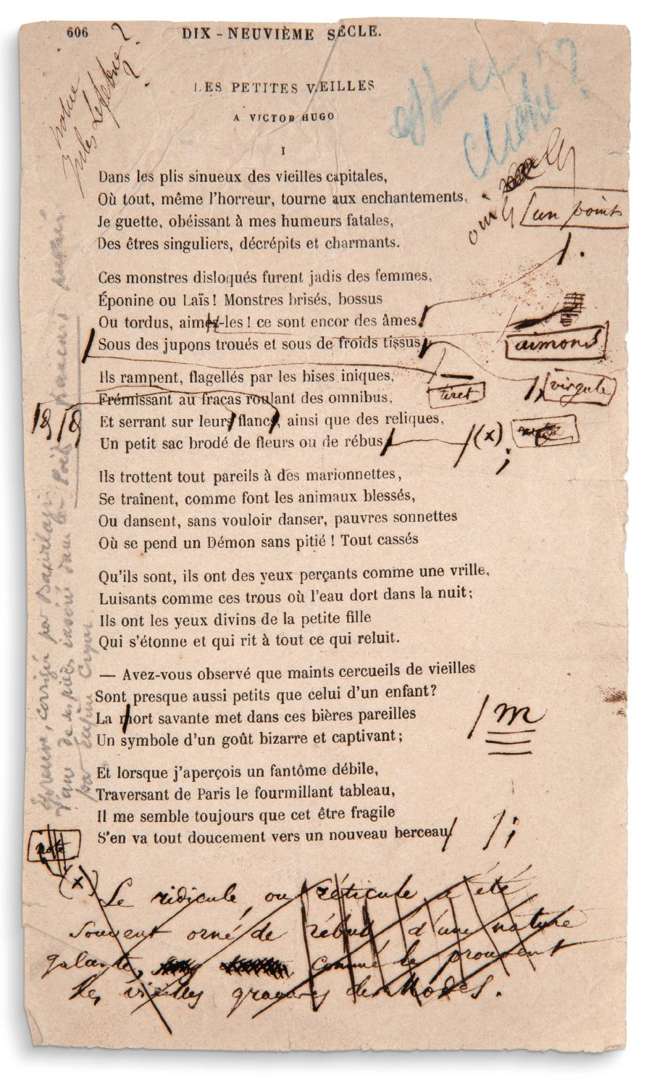 606 DIX-NEUVIÈME SÈCLE.
LES PETITES VEILLES
A VICTOR HUGO
est-ce
cliché?
oui
un point
I
Dans les plis sinueux des vieilles capitales,
Où tout, même l'horreur, tourne aux enchantements,
Je guette, obéissant à mes humeurs fatales,
Des êtres singuliers, décrépits et charmants.
Ces monstres disloqués furent jadis des femmes,
Éponine ou Laïs! Monstres brisés, bossus
Ou tordus, aimez-les! ce sont encor des âmes,
Sous des jupons troués et sous de froids tissus,
aimons
Ils rampent, flagellés par les bises iniques,
tiret
virgule
Frémissant au fracas roulant des omnibus,
Et serrant sur leurs flancs, ainsi que des reliques,
Un petit sac brodé de fleurs ou de rébus,
(x)
;
Ils trottent tout pareils à des marionnettes,
Se traînent, comme font les animaux blessés,
Ou dansent, sans vouloir danser, pauvres sonnettes
Où se pend un Démon sans pitié! Tout cassés
Qu'ils sont, ils ont des yeux perçants comme une vrille,
Luisants comme ces trous où l'eau dort dans la nuit;
Ils ont les yeux divins de la petite fille
Qui s'étonne et qui rit à tout ce qui reluit.
— Avez-vous observé que maints cercueils de vieilles
Sont presque aussi petits que celui d'un enfant?
La mort savante met dans ces bières pareilles
m
Un symbole d'un goût bizarre et captivant;
Et lorsque j'aperçois un fantôme débile,
Traversant de Paris le fourmillant tableau,
Il me semble toujours que cet être fragile
S'en va tout doucement vers un nouveau berceau
;
note
(x) Le ridicule ou réticule a été
souvent orné de rébus d'une nature
galante, comme le prouvent
les vieilles gravures des Modes.
Épreuve, corrigée par Baudelaire
l'une de ses pièces insérée dans les Poètes français
par Eugène Crépet